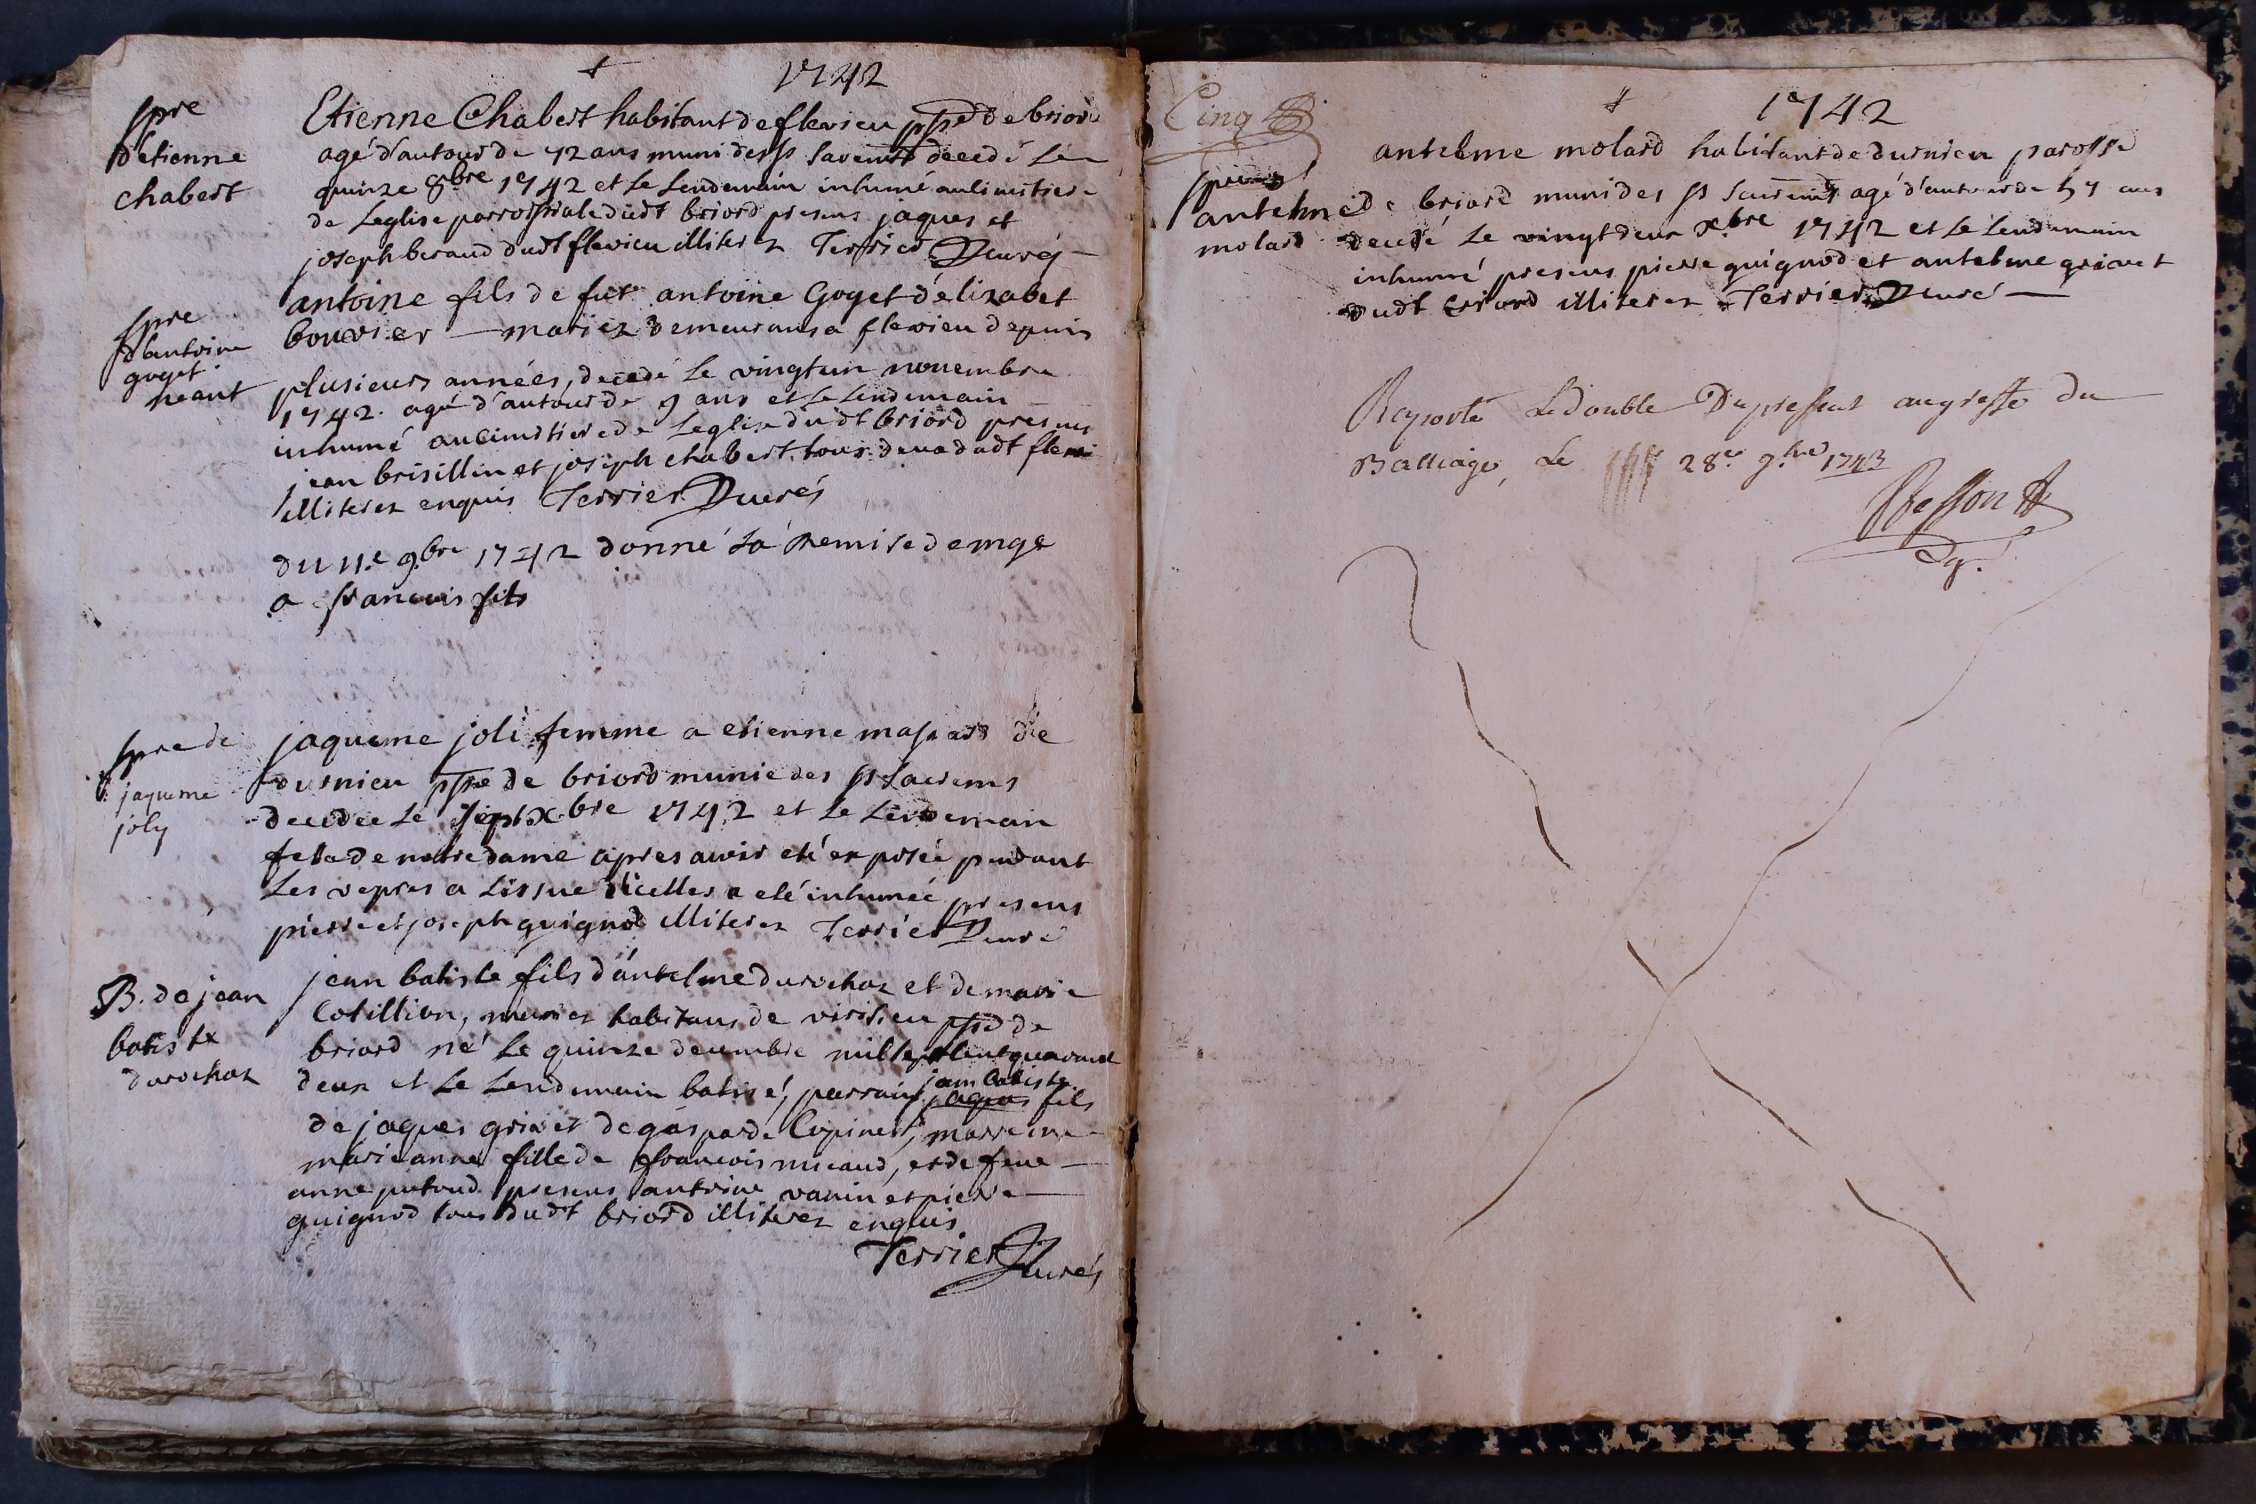 1742
spre
d'etienne
chabert
Etienne Chabert habitant de flevieu ppse de briord
agé d'autour de 72 ans muni des ss sacremts decedé le
quinze 8.bre 1742 et le lendemain inhumé au cimitiere
de Leglise parroissiale dudt briord presens jaques et
joseph beraud dudt flevieu illiterez Terrier Curé
spre
d'antoine
goget
neant
antoine fils de fut antoine Goget d'elizabet
bouvier mariez demeurans a flevieu depuis
plusieurs années, decedé Le vingtun novembre
1742. agé d'autour de 9 ans et Le Lendemain
inhumé au cimitiere de Leglise dudt briord presens
jean brisillin et joseph chabert tous deux dudt flevi
illiterez enquis Terrier Curé
du 11.e 9.bre 1742 donné la Remise de mge
a francois fils
spre de
jaqueme
joly
jaqueme joli femme a etienne
durnieu ppse de briord munie des ss sacrems
decedee le sept Xbre 1742 et le Lendemain
feste de notre dame apres avoir eté exposée pendant
Les vepres a Lissue d'icelles a eté inhumée presens
pierre et joseph quignod illiterez Terrier Curé
B. de jean
batiste
durochat
jean batiste fils d'antelme durochaz et de marie
Cotillion, mariez habitans de virisieu ppse de
briord né le quinze decembre mille sept cent quarante
deux et le Lendemain batisé, parrain jean batiste
jaques fils
de jaques griot et de gasparde Cupinet, marreine
marie anne fille de francois micaud, et de feue
anne putoud presens antoine vanin et pierre
quignod tous dudt briord illiterez enquis
Terrier Curé
Cinq
1742
spre
antelme
molard
antelme molard habitant de durnieu parosse
de briord muni des ss sacremts agé d'autour de 57 ans
decedé Le vingt deux xbre 1742 et Le Lendemain
inhumé presens pierre quignod et antelme griot
dudt briord illiterez Terrier Curé
Reporté Le double Du presēnt au greffe du
Balliage, Le 28.e 9.bre 1743
Besson